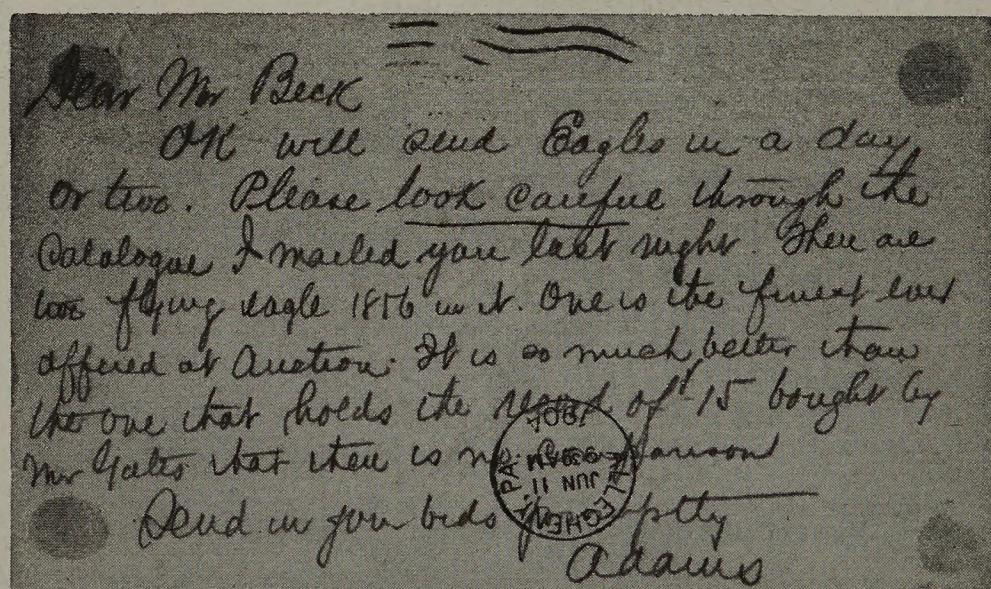 Dear Mr Beck
OK will send Eagles in a day
or two. Please look careful through the
Catalogue I mailed you last night. There are
two flying eagle 1856 in it. One is the finest ever
offered at Auction. It is so much better than
the one that holds the record of $15 bought by
Mr Yates that there is no Comparison
Send in your bids promptly
Adams
ALLEGHENY, PA.
JUN 11
1904